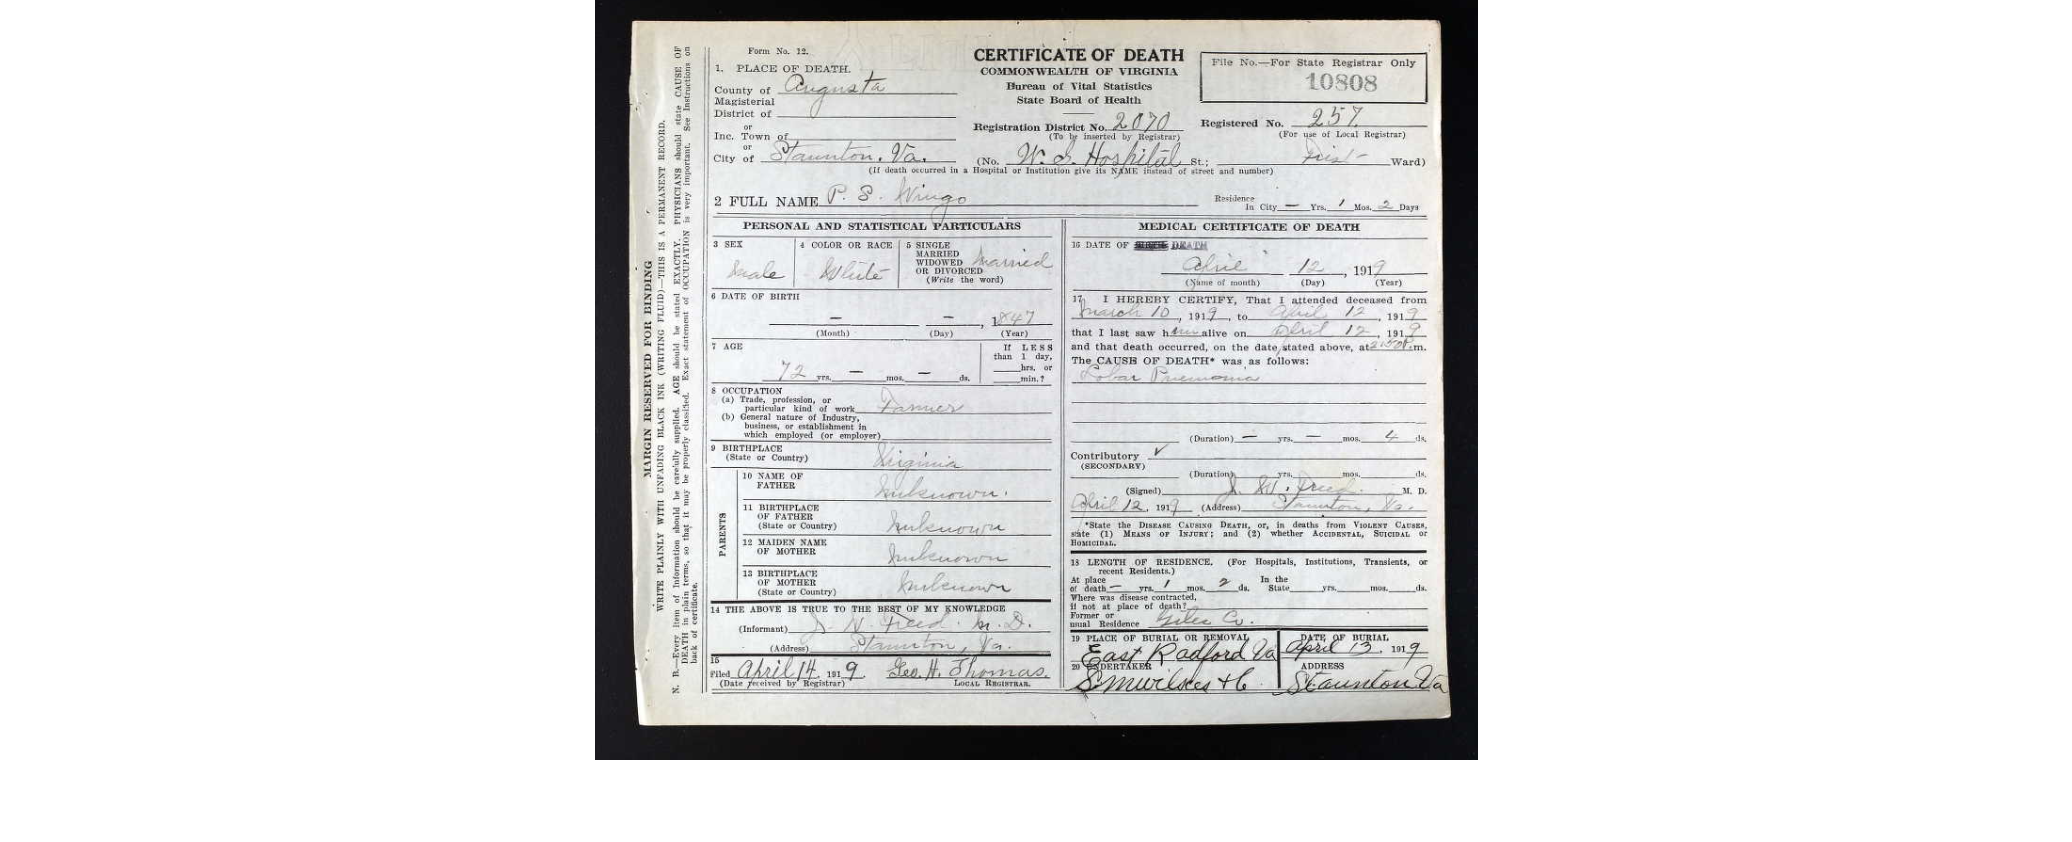 Form No. 12.
1. PLACE OF DEATH.
County of Augusta
Magisterial
District of
or
Inc. Town of
or
City of Staunton, Va.
CERTIFICATE OF DEATH
COMMONWEALTH OF VIRGINIA
Bureau of Vital Statistics
State Board of Health
Registration District No. 2070
(To be inserted by Registrar)
File No.—For State Registrar Only
10808
Registered No. 257
(For use of Local Registrar)
(No. W. S. Hospital St.; Ward)
(If death occurred in a Hospital or Institution give its NAME instead of street and number)
2 FULL NAME P. S. Wingo
Residence
In City — Yrs. 1 Mos. 2 Days
PERSONAL AND STATISTICAL PARTICULARS
3 SEX
Male
4 COLOR OR RACE
White
5 SINGLE
MARRIED
WIDOWED
OR DIVORCED
(Write the word)
Married
6 DATE OF BIRTH
— — , 1847
(Month) (Day) (Year)
7 AGE
72 yrs. — mos. — ds.
If LESS
than 1 day,
hrs. or
min.?
8 OCCUPATION
(a) Trade, profession, or
particular kind of work Farmer
(b) General nature of Industry,
business, or establishment in
which employed (or employer)
9 BIRTHPLACE
(State or Country) Virginia
PARENTS
10 NAME OF
FATHER Unknown.
11 BIRTHPLACE
OF FATHER
(State or Country) Unknown
12 MAIDEN NAME
OF MOTHER Unknown
13 BIRTHPLACE
OF MOTHER
(State or Country) Unknown
14 THE ABOVE IS TRUE TO THE BEST OF MY KNOWLEDGE
(Informant) J. W. Freed. M. D.
(Address) Staunton, Va.
15
Filed April 14 1919 Geo. H. Thomas.
(Date received by Registrar) LOCAL REGISTRAR.
MEDICAL CERTIFICATE OF DEATH
16 DATE OF DEATH
April 12, 1919
(Name of month) (Day) (Year)
17 I HEREBY CERTIFY, That I attended deceased from
March 10, 1919, to April 12, 1919
that I last saw him alive on April 12, 1919
and that death occurred, on the date stated above, at m.
The CAUSE OF DEATH* was as follows:
Lobar Pneumonia
(Duration) — yrs. — mos. 4 ds.
Contributory ✓
(SECONDARY)
(Duration) yrs. mos. ds.
(Signed) J. W. Freed. M. D.
April 12, 1919 (Address) Staunton, Va.
*State the DISEASE CAUSING DEATH, or, in deaths from VIOLENT CAUSES,
state (1) MEANS OF INJURY; and (2) whether ACCIDENTAL, SUICIDAL or
HOMICIDAL.
18 LENGTH OF RESIDENCE. (For Hospitals, Institutions, Transients, or
recent Residents.)
At place
of death — yrs. 1 mos. 2 ds. In the
State yrs. mos. ds.
Where was disease contracted,
if not at place of death?
Former or
usual Residence Giles Co.
19 PLACE OF BURIAL OR REMOVAL
East Radford Va
DATE OF BURIAL
April 13, 1919
20 UNDERTAKER
ADDRESS
Staunton Va
MARGIN RESERVED FOR BINDING
WRITE PLAINLY WITH UNFADING BLACK INK (WRITING FLUID)—THIS IS A PERMANENT RECORD.
N. B.—Every item of Information should be carefully supplied. AGE should be stated EXACTLY. PHYSICIANS should state CAUSE OF
DEATH in plain terms, so that it may be properly classified. Exact statement of OCCUPATION is very important. See Instructions on
back of certificate.